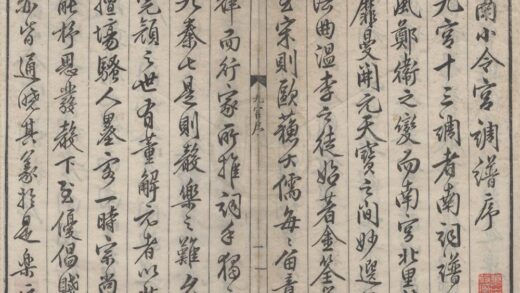 南小令宮調譜序
九宮十三調者南詞譜
風鄭衛之變而南宮北里
靡曼開元天寶之間妙選
法曲溫李之徒始著金筌
宋則歐蘇大儒每〻留意
九宮序
一
律而行家所推詞手獨
九秦七是則聲樂之難
完顏之世有董解元者以北
擅場騷人墨客一時宗尚
能抒思發聲下至優倡賤
亦皆通曉其義於是樂